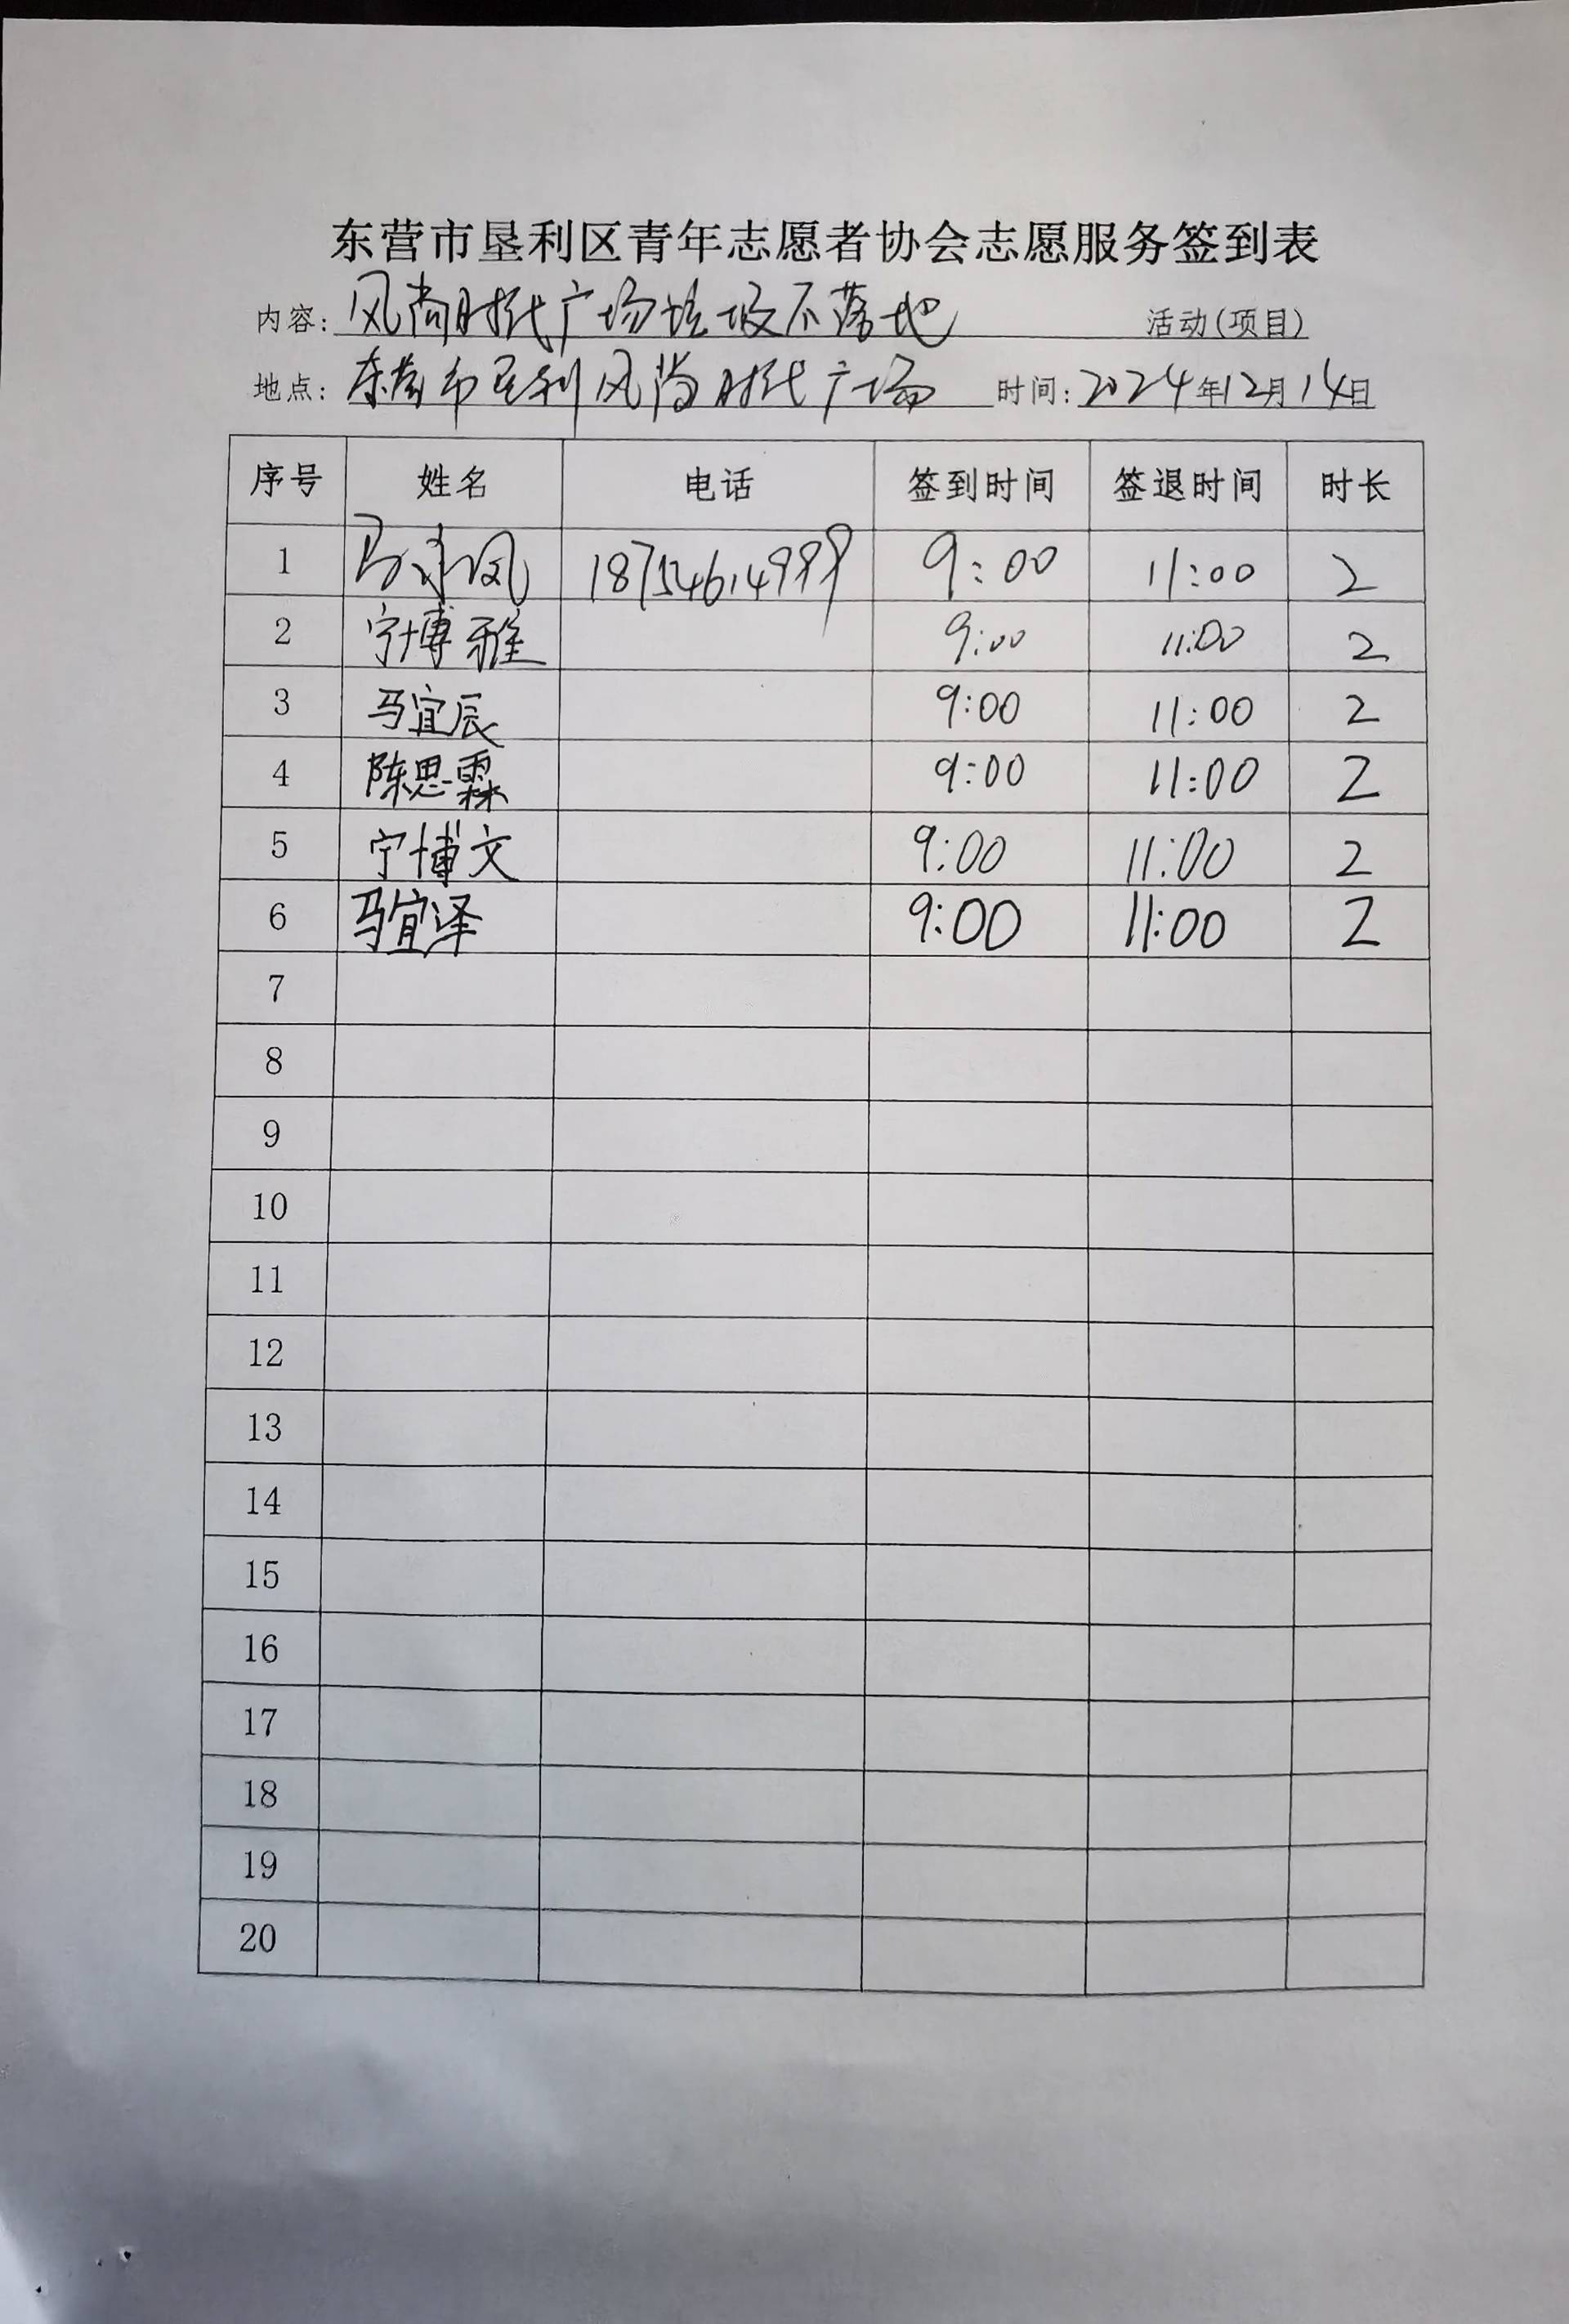 东营市垦利区青年志愿者协会志愿服务签到表
内容: 风尚时代广场垃圾不落地 活动(项目)
地点: 东营市垦利风尚时代广场 时间: 2024年12月14日
序号 姓名 电话 签到时间 签退时间 时长
1 马 凤 18754614999 9:00 11:00 2
2 宁博雅 9:00 11:00 2
3 马宜辰 9:00 11:00 2
4 陈思霖 9:00 11:00 2
5 宁博文 9:00 11:00 2
6 马宜泽 9:00 11:00 2
7
8
9
10
11
12
13
14
15
16
17
18
19
20